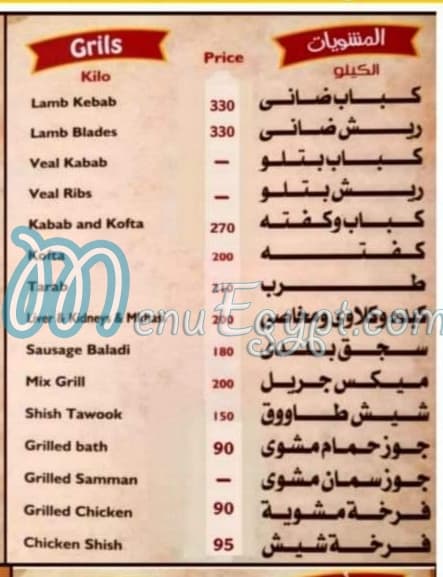 Grils
Price
المشويات
Kilo
الكيلو
Lamb Kebab 330 كباب ضانى
Lamb Blades 330 ريش ضانى
Veal Kabab - كباب بتلو
Veal Ribs - ريش بتلو
Kabab and Kofta 270 كباب وكفته
Kofta 200 كفته
Tarab 210 طرب
Liver & Kidneys & 200 كبده وكلاوى ومخاصى
MenuEgypt.com
Sausage Baladi 180 سجق بلدى
Mix Grill 200 ميكس جريل
Shish Tawook 150 شيش طاووق
Grilled bath 90 جوز حمام مشوى
Grilled Samman - جوز سمان مشوى
Grilled Chicken 90 فرخة مشوية
Chicken Shish 95 فرخة شيش